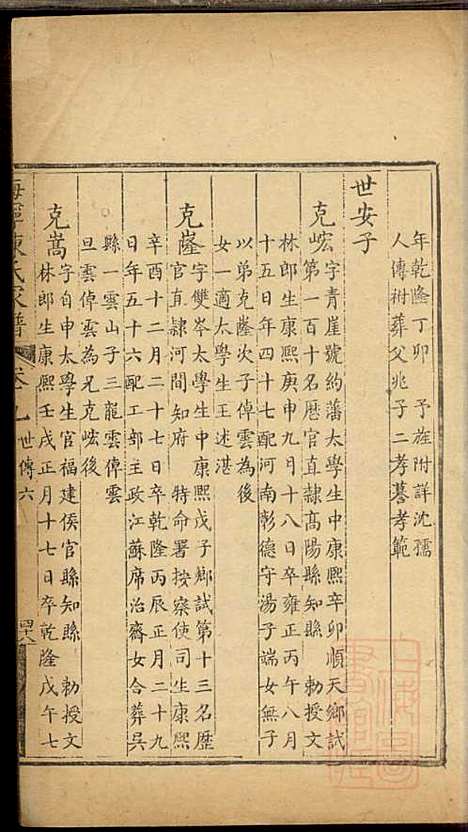 年乾隆丁卯　予旌附詳沈孺
人傳祔葬父兆子二孝墓孝範
世安子
克峵字青崖號約藩太學生中康熙辛卯順天鄉試
第一百十名歷官直隷高陽縣知縣　勅授文
林郎生康熙庚申九月十八日卒雍正丙午八月
十五日年四十七配河南彰德守湯子端女無子
以弟克㟷次子雲倬為後
女一適太學生王述湛
克㟷字雙岑太學生中康熙戊子鄉試第十三名歷
官直隷河間知府　特命署按察使司生康熙
辛酉十二月二十七日卒乾隆丙辰正月二十九
日年五十六配工部主政江蘇席治齋女合葬吳
縣一雲山子三龍雲倬雲
旦雲倬雲為兄克峵後
克嵩字自申太學生官福建侯官縣知縣　勅授文
林郎生康熙壬戌正月十七日卒乾隆戊午七
海寧陳氏家譜
卷九
世傳六